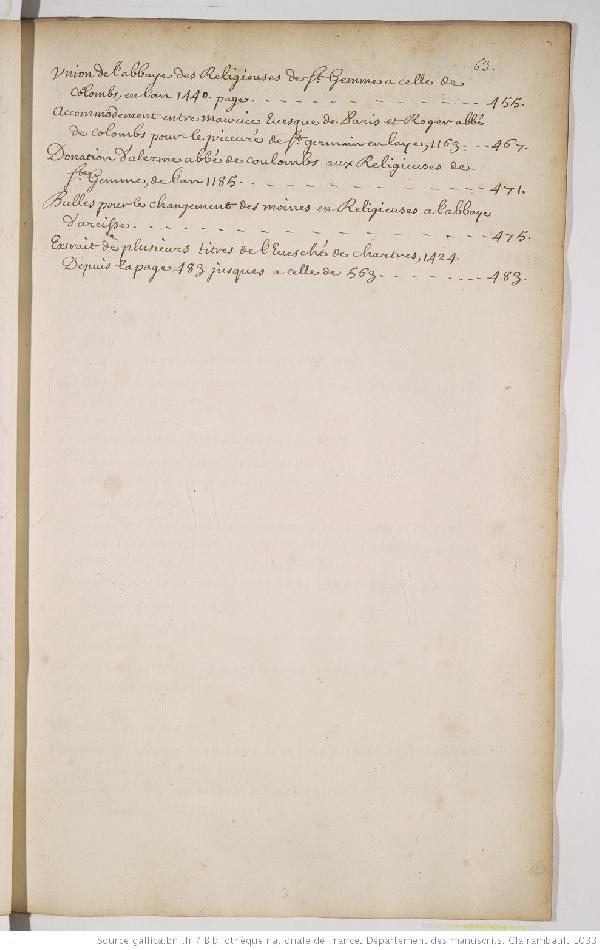 63.
Union de l'abbaye des Religieuses de St. Gemme a celle de
colombs, en l'an 1440. page. - - - - - - - - - - 455.
accommodement entre maurice Euesque de Paris et Roger abbé
de colombs pour le prieuré de St. germain en laye, 1163. - - 467.
Donation d'alerme abbé de coulombs aux Religieuses de
ste. Gemme, de l'an 1185. - - - - - - - - - - 471.
Bulles pour le changement des moines en Religieuses a l'abbaye
d'arcisse. - - - - - - - - - - - - - - 475.
Extrait de plusieurs titres de l'Euesché de chartres, 1424.
Depuis la page 483 jusques a celle de 563. - - - - - - 483.
Source gallica.bnf.fr / Bibliothèque nationale de France. Département des manuscrits. Clairambault 1033